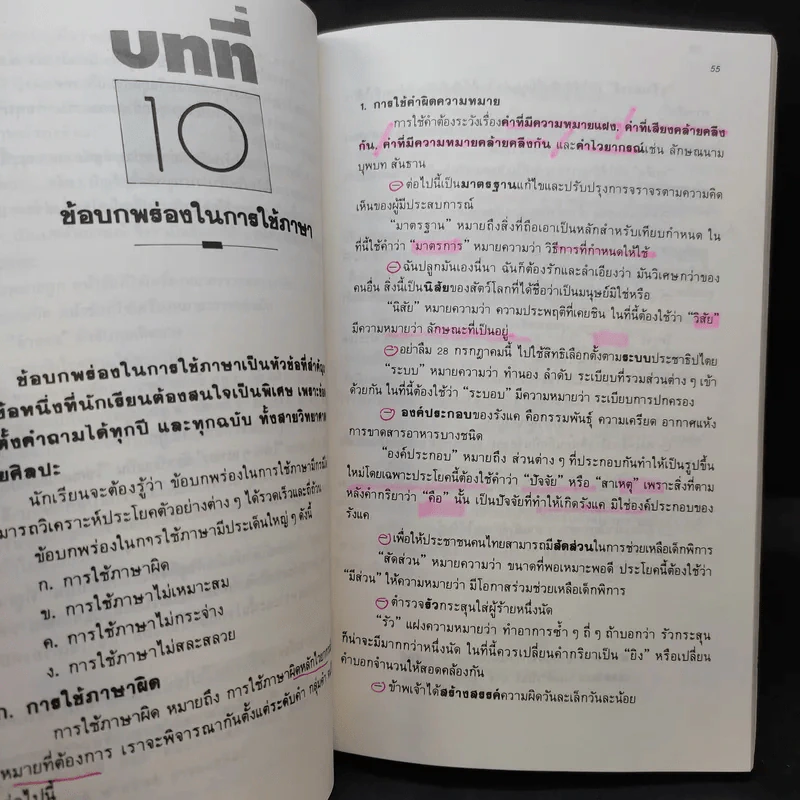 บทที่
10
ข้อบกพร่องในการใช้ภาษา
ข้อบกพร่องในการใช้ภาษาเป็นหัวข้อที่สำคัญ
ข้อหนึ่งที่นักเรียนต้องสนใจเป็นพิเศษ เพราะข้อ
ตั้งคำถามได้ทุกปี และทุกฉบับ ทั้งสายวิทยาศาส
ยศิลปะ
นักเรียนจะต้องรู้ว่า ข้อบกพร่องในการใช้ภาษามีกรณี
มารถวิเคราะห์ประโยคตัวอย่างต่าง ๆ ได้รวดเร็วและถี่ถ้วน
ข้อบกพร่องในการใช้ภาษามีประเด็นใหญ่ ๆ ดังนี้
ก. การใช้ภาษาผิด
ข. การใช้ภาษาไม่เหมาะสม
ค. การใช้ภาษาไม่กระจ่าง
ง. การใช้ภาษาไม่สละสลวย
ก. การใช้ภาษาผิด
การใช้ภาษาผิด หมายถึง การใช้ภาษาผิดหลักไวยากรณ์
หมายที่ต้องการ เราจะพิจารณากันตั้งแต่ระดับคำ กลุ่มคำ
ต่อไปนี้
55
1. การใช้คำผิดความหมาย
การใช้คำต้องระวังเรื่องคำที่มีความหมายแฝง, คำที่เสียงคล้ายคลึง
กัน, คำที่มีความหมายคล้ายคลึงกัน และคำไวยากรณ์เช่น ลักษณนาม
บุพบท สันธาน
– ต่อไปนี้เป็นมาตรฐานแก้ไขและปรับปรุงการจราจรตามความคิด
เห็นของผู้มีประสบการณ์
“มาตรฐาน” หมายถึงสิ่งที่ถือเอาเป็นหลักสำหรับเทียบกำหนด ใน
ที่นี้ใช้คำว่า “มาตรการ” หมายความว่า วิธีการที่กำหนดให้ใช้
– ฉันปลูกมันเองนี่นา ฉันก็ต้องรักและลำเอียงว่า มันวิเศษกว่าของ
คนอื่น สิ่งนี้เป็นนิสัยของสัตว์โลกที่ได้ชื่อว่าเป็นมนุษย์มิใช่หรือ
“นิสัย” หมายความว่า ความประพฤติที่เคยชิน ในที่นี้ต้องใช้ว่า “วิสัย”
มีความหมายว่า ลักษณะที่เป็นอยู่
– อย่าลืม 28 กรกฎาคมนี้ ไปใช้สิทธิเลือกตั้งตามระบบประชาธิปไตย
“ระบบ” หมายความว่า ทำนอง ลำดับ ระเบียบที่รวมส่วนต่าง ๆ เข้า
ด้วยกัน ในที่นี้ต้องใช้ว่า “ระบอบ” มีความหมายว่า ระเบียบการปกครอง
– องค์ประกอบของรังแค คือกรรมพันธุ์ ความเครียด อากาศแห้ง
การขาดสารอาหารบางชนิด
“องค์ประกอบ” หมายถึง ส่วนต่าง ๆ ที่ประกอบกันทำให้เป็นรูปขึ้น
ใหม่โดยเฉพาะประโยคนี้ต้องใช้คำว่า “ปัจจัย” หรือ “สาเหตุ” เพราะสิ่งที่ตาม
หลังคำกริยาว่า “คือ” นั้น เป็นปัจจัยที่ทำให้เกิดรังแค มิใช่องค์ประกอบของ
รังแค
– เพื่อให้ประชาชนคนไทยสามารถมีสัดส่วนในการช่วยเหลือเด็กพิการ
“สัดส่วน” หมายความว่า ขนาดที่พอเหมาะพอดี ประโยคนี้ต้องใช้ว่า
“มีส่วน” ให้ความหมายว่า มีโอกาสร่วมช่วยเหลือเด็กพิการ
– ตำรวจรัวกระสุนใส่ผู้ร้ายหนึ่งนัด
“รัว” แฝงความหมายว่า ทำอาการซ้ำ ๆ ถี่ ๆ ถ้าบอกว่า รัวกระสุน
ก็น่าจะมีมากกว่าหนึ่งนัด ในที่นี้ควรเปลี่ยนคำกริยาเป็น “ยิง” หรือเปลี่ยน
คำบอกจำนวนให้สอดคล้องกัน
– ข้าพเจ้าได้สร้างสรรค์ความผิดวันละเล็กวันละน้อย